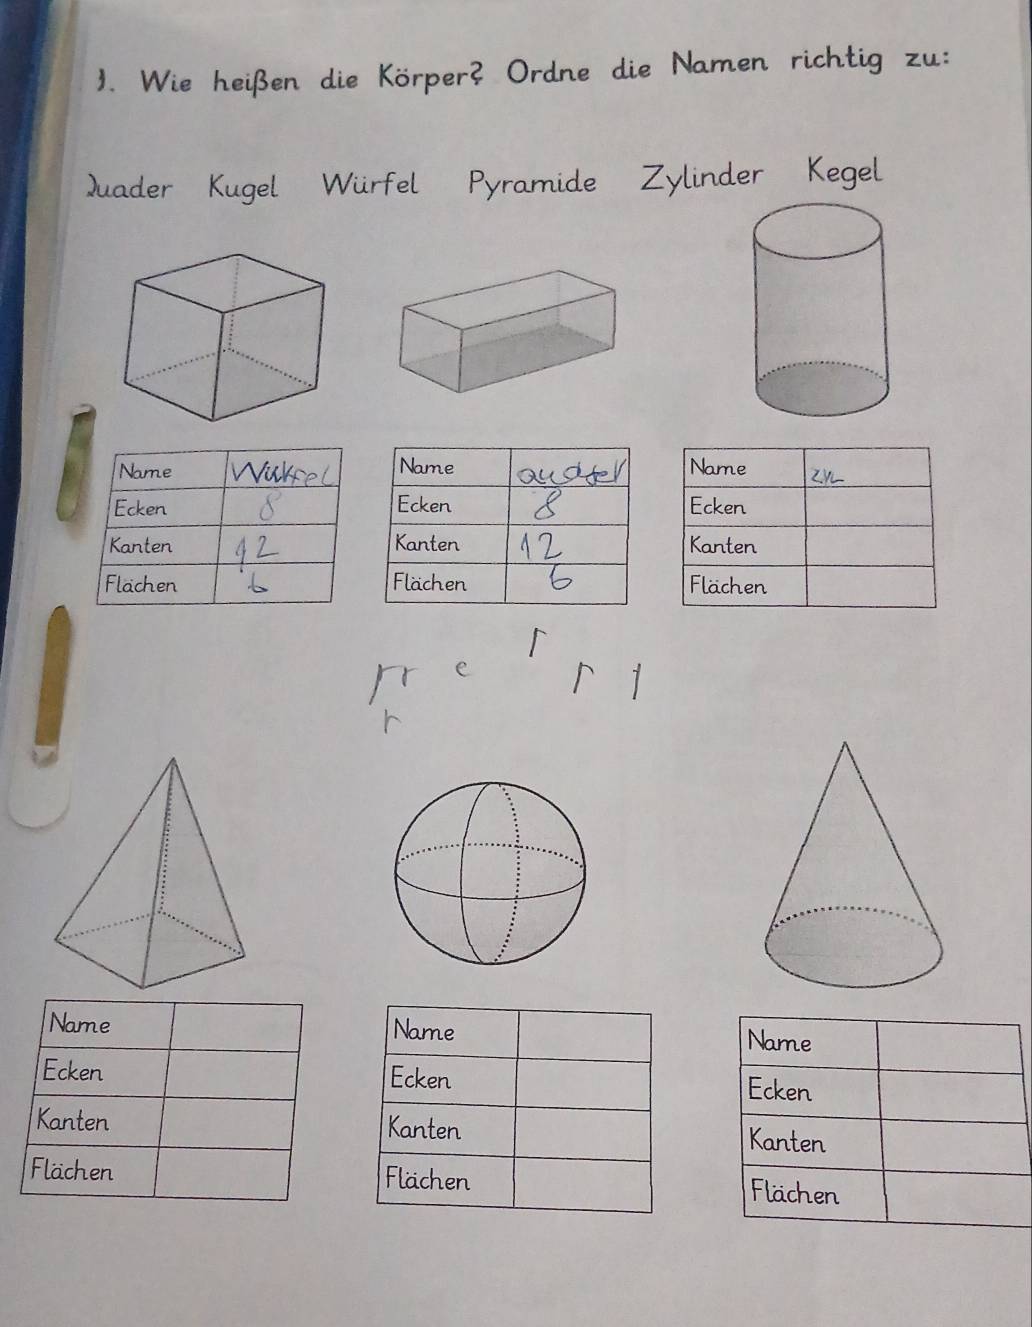 3. Wie heißen die Körper? Ordne die Namen richtig zu:
Quader Kugel Würfel Pyramide Zylinder Kegel
Name Wükfel
Ecken 8
Kanten 12
Flächen 6
Name
Ecken 8
Kanten 12
Flächen 6
Name zyl
Ecken
Kanten
Flächen
r
r r e r 1
r
Name
Ecken
Kanten
Flächen
Name
Ecken
Kanten
Flächen
Name
Ecken
Kanten
Flächen